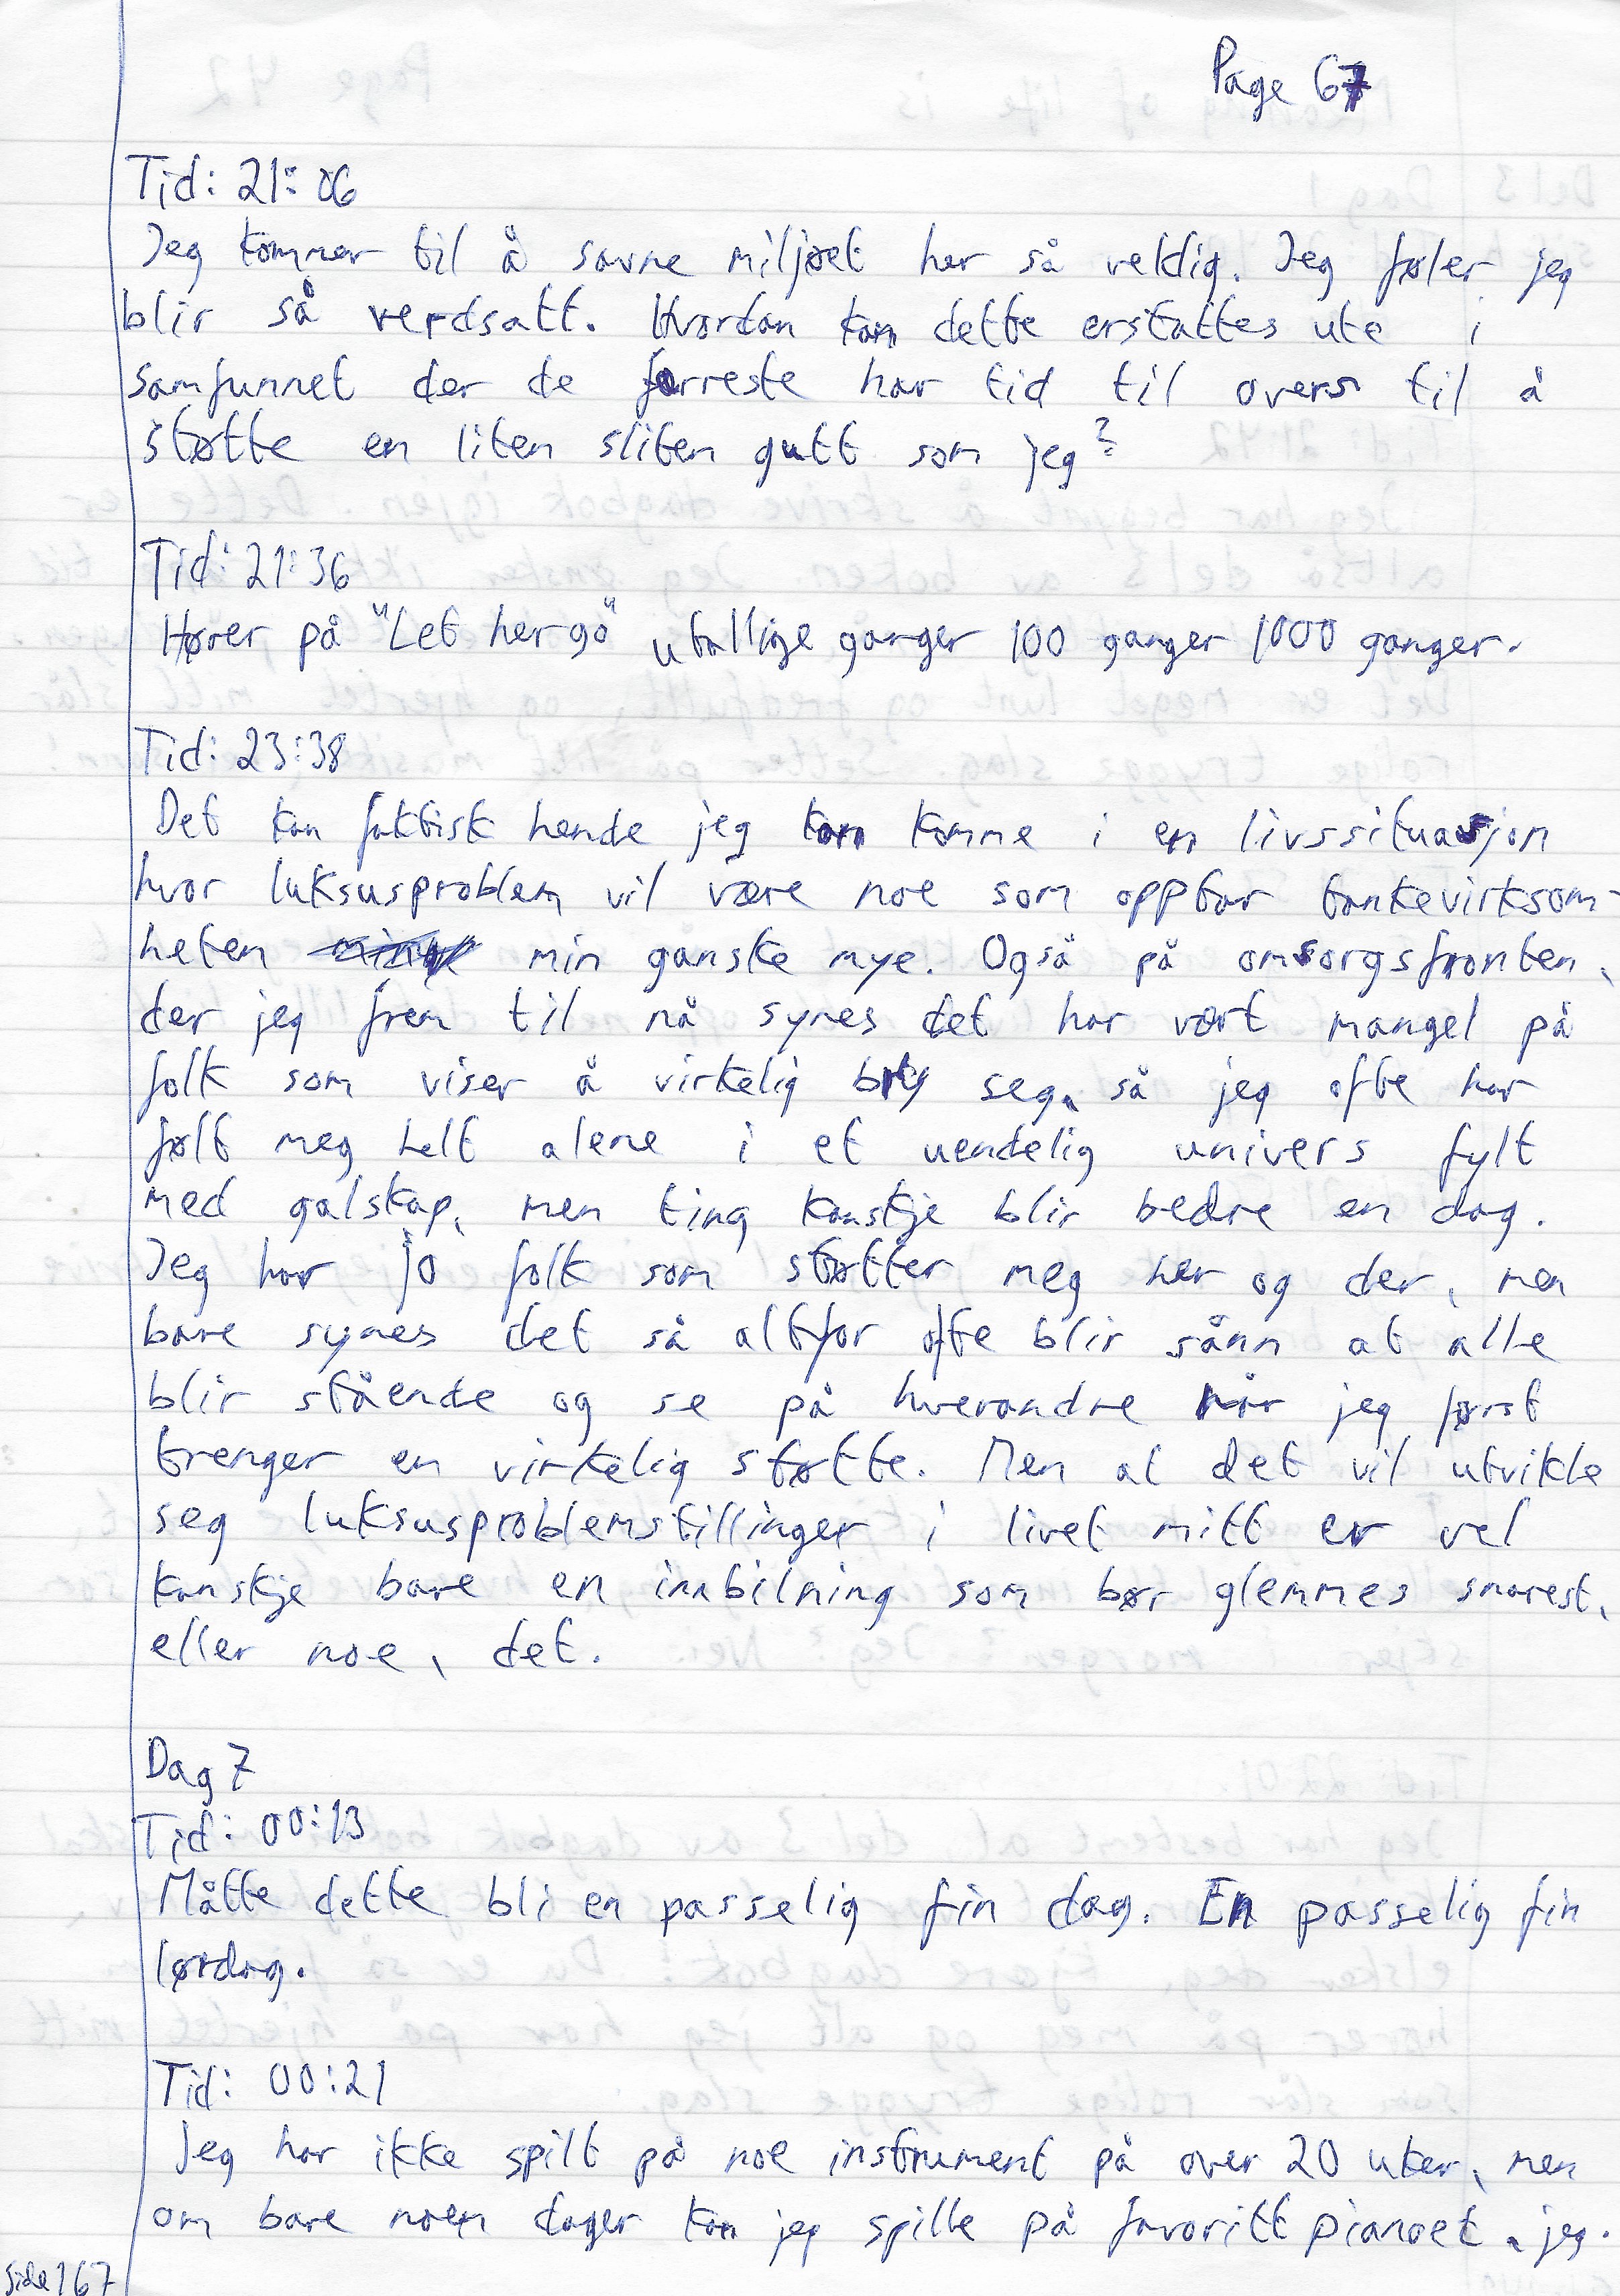 Page 67
Tid: 21:06
Jeg kommer til å savne miljøet her så veldig. Jeg føler jeg
blir så verdsatt. Hvordan kan dette erstattes ute i
samfunnet der de færreste har tid til overs til å
støtte en liten sliten gutt som jeg?
Tid: 21:36
Hører på "Let her go" utallige ganger 100 ganger 1000 ganger.
Tid: 23:38
Det kan faktisk hende jeg kan komme i en livssituasjon
hvor luksusproblem vil være noe som opptar tankevirksom-
heten min ganske mye. Også på omsorgsfronten,
der jeg frem til nå synes det har vært mangel på
folk som viser å virkelig bry seg, så jeg ofte har
følt meg helt alene i et uendelig univers fylt
med galskap, men ting kanskje blir bedre en dag.
Jeg har jo folk som støtter meg her og der, men
bare synes det så altfor ofte blir sånn at alle
blir stående og se på hverandre når jeg først
trenger en virkelig støtte. Men at det vil utvikle
seg luksusproblemstillinger i livet mitt er vel
kanskje bare en innbilning som bør glemmes snarest,
eller noe, det.
Dag 7
Tid: 00:13
Måtte dette bli en passelig fin dag. En passelig fin
lørdag.
Tid: 00:21
Jeg har ikke spilt på noe instrument på over 20 uker, men
om bare noen dager kan jeg spille på favoritt pianoet, jeg.
Side 167